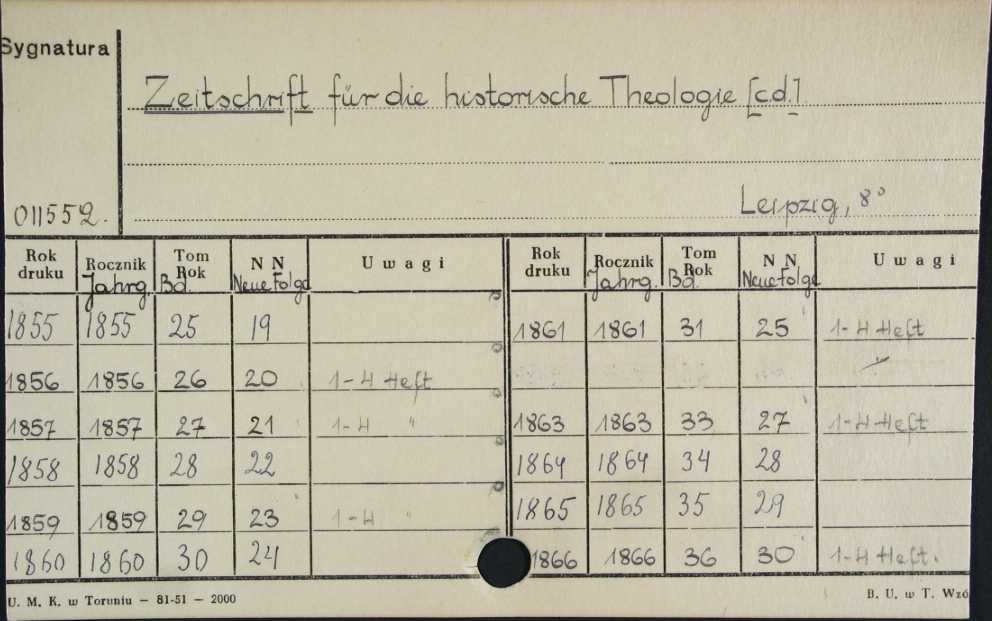 Sygnatura
Zeitschrift für die historische Theologie [c.d.]
011552.
Leipzig, 8°
Rok druku Rocznik Tom Rok N N Uwagi Rok druku Rocznik Tom Rok N N Uwagi
Jahrg. Bd. Neue Folge Jahrg. Bd. Neue Folge
1855 1855 25 19 1861 1861 31 25 1-4 Heft
1856 1856 26 20 1-4 Heft
1857 1857 27 21 1-4 " 1863 1863 33 27 1-4 Heft
1858 1858 28 22 1864 1864 34 28
1859 1859 29 23 1-4 " 1865 1865 35 29
1860 1860 30 24 1866 1866 36 30 1-4 Heft.
U. M. K. w Toruniu — 81-51 — 2000 B. U. w T. Wzó